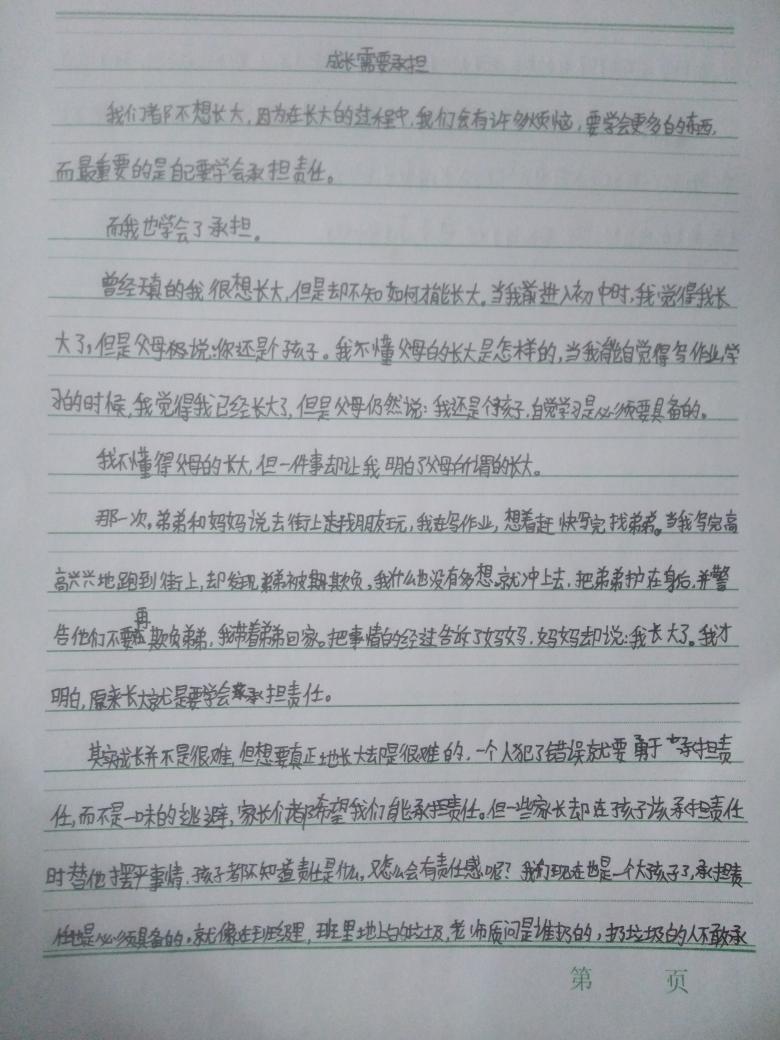 成长需要承担
我们都不想长大，因为在长大的过程中，我们会有许多烦恼，要学会更多的东西，
而最重要的是自己要学会承担责任。
而我也学会了承担。
曾经天真的我很想长大，但是却不知如何才能长大。当我前进入初中时，我觉得我长
大了，但是父母都说：你还是个孩子。我不懂父母的长大是怎样的，当我能自觉得写作业，学
习的时候，我觉得我已经长大了，但是父母仍然说：我还是个孩子，自觉学习是必须要具备的。
我不懂得父母的长大，但一件事却让我明白了父母所谓的长大。
那一次，弟弟和妈妈说去街上找朋友玩，我在写作业，想着赶快写完找弟弟。当我写完高
高兴兴地跑到街上，却发现弟弟被欺负，我什么也没有多想。就冲上去，把弟弟护在身后，并警
告他们不要再欺负弟弟，我带着弟弟回家。把事情的经过告诉了妈妈，妈妈却说：我长大了。我才
明白，原来长大就是要学会承担责任。
其实成长并不是很难，但想要真正地长大却是很难的，一个人犯了错误就要勇于承担责
任，而不是一味的逃避，家长们都希望我们能承担责任。但一些家长却在孩子该承担责任
时替他摆平事情，孩子都不知道责任是什么，又怎么会有责任感呢？我们现在也是一个大孩子了，承担责
任也是必须具备的。就像在班级里，班里地上的垃圾，老师质问是谁扔的，扔垃圾的人不敢承
第 页